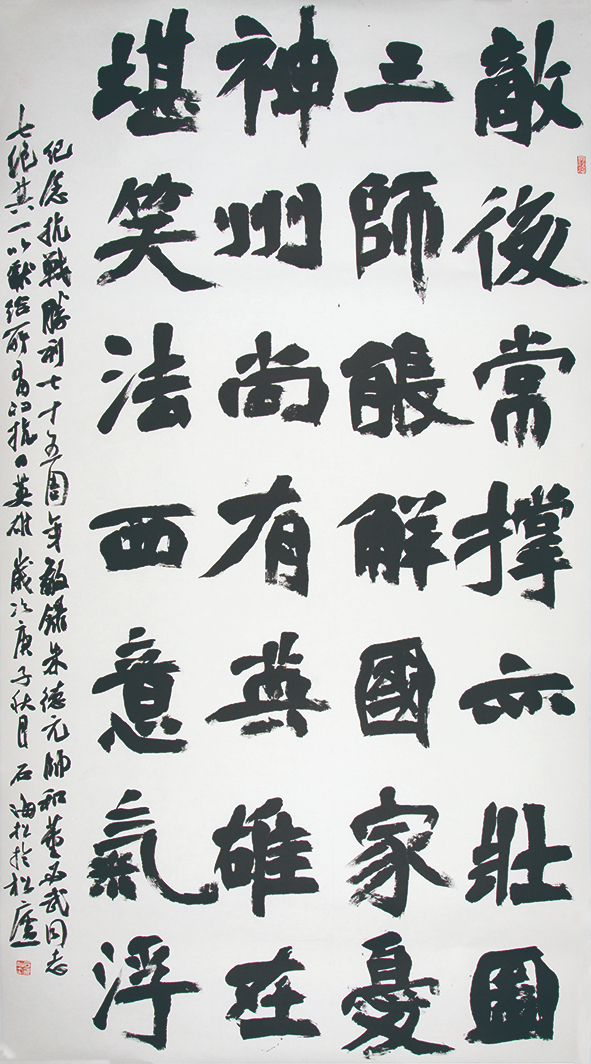 敵後常撐亦壯圖
三師能解國家憂
神州尚有英雄在
堪笑法西意氣浮
纪念抗戰勝利七十五周年敬錄朱德元帅和董必武同志
七绝其一以献给所有的抗日英雄歲次庚子秋月石海松於松廬